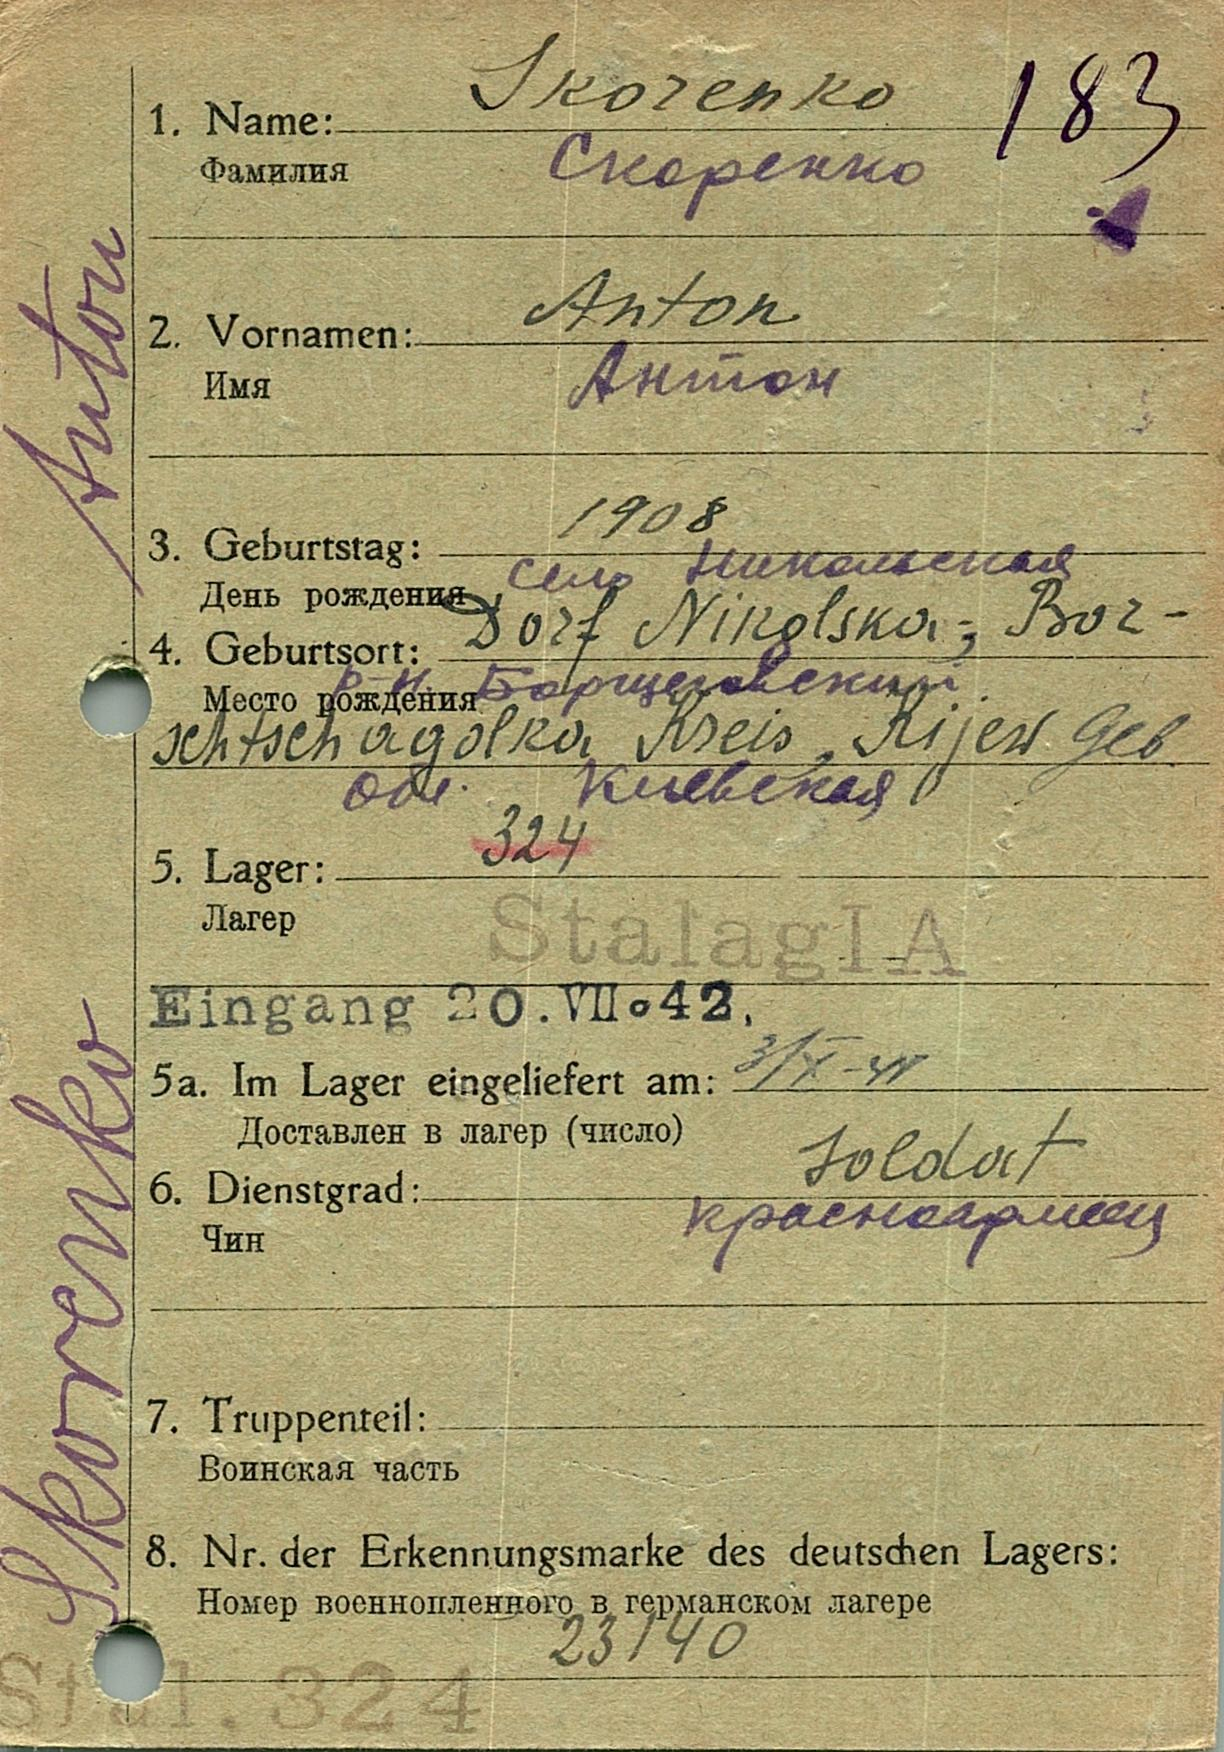 Skorenko 183
1. Name:
Скоренко
Фамилия
Anton
2. Vornamen:
Антон
Имя
1908
3. Geburtstag:
село Никольская
День рождения
Dorf Nikolska, Bor-
4. Geburtsort:
р-н. Борщеговский.
Место рождения
schtschagolka Kreis, Kijew Geb
обл. Киевская
324
5. Lager:
Лагер
Stalag IA
Eingang 20.VII.42.
5a. Im Lager eingeliefert am: 3/X-41
Доставлен в лагер (число)
Soldat
6. Dienstgrad:
красноармеец
Чин
7. Truppenteil:
Воинская часть
8. Nr. der Erkennungsmarke des deutschen Lagers:
Номер военнопленного в германском лагере
23140
Stal. 324
Skorenko Anton